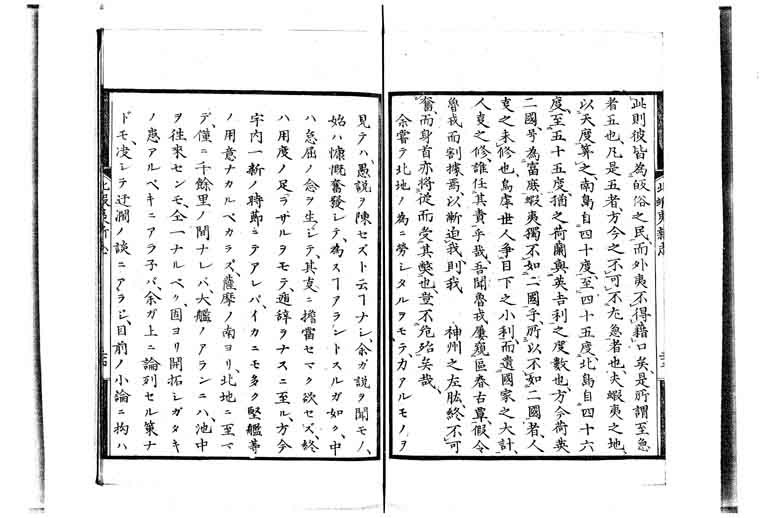 此則彼皆為皈俗之民、而外夷不得藉口矣、是所謂至急
者五也、凡是五者方今之不可不尤急者也、夫蝦夷之地、
以天度算之、南島自四十度至四十五度北島自四十六
度至五十五度猶之荷蘭與英吉利之度數也、方今荷英
二國号為富庶蝦夷獨不如二國乎、所以不如二國者人
支之未修也烏虖世人争目下之小利而遺國家之大計、
人支之修誰任其責乎哉吾聞魯戎屢窺區春古覃假令
魯戎而割據焉以漸迫我則我　神州之左肱終不可
奮、而身首亦将從而受其斃也、豈不殆哉、
余嘗テ北地ノ為ニ労シタルヲモテ力アルモノヲ
見テハ、愚説ヲ陳セズト云ヿナシ、余ガ説ヲ聞モノ、
始ハ慷慨奮發シテ、為スヿアラントスルガ如ク、中
ハ怠屈ノ念ヲ生シテ、其支ニ擔當セマク欲セズ、終
ハ用度ノ足ラザルヲモテ遁辞ヲナスニ至ル、方今
宇内一新ノ時節ニテアレバ、イカニモ多ク堅艦等
ノ用意ナカルベカラズ、薩摩ノ南ヨリ、北地ニ至マ
デ、僅ニ千餘里ノ間ナレバ、大艦ノアランニハ、池中
ヲ往来センモ、仝一ナルベク、固ヨリ開拓シガタキ
ノ患アルベキニアラ子バ、余ガ上ニ論列セル策ナ
ドモ、决シテ迂濶ノ談ニアラジ、目前ノ小論ニ拘ハ